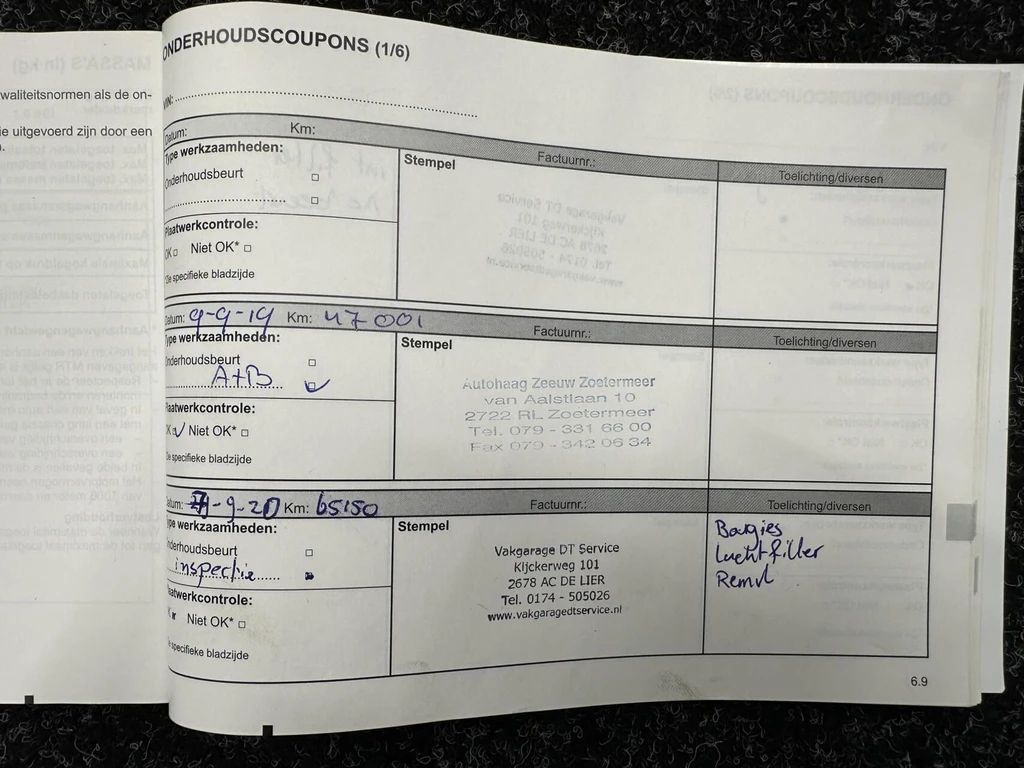 waliteitsnormen als de on-
ie uitgevoerd zijn door een
ONDERHOUDSCOUPONS (1/6)
VIN:
Datum: Km: Factuurnr.: Toelichting/diversen
Type werkzaamheden:
Stempel
Onderhoudsbeurt
Plaatwerkcontrole:
OK Niet OK*
*De specifieke bladzijde
Datum: 9-9-19 Km: 47001 Factuurnr.: Toelichting/diversen
Type werkzaamheden:
Stempel
Onderhoudsbeurt
A+B
Plaatwerkcontrole:
OK Niet OK*
*De specifieke bladzijde
Autohaag Zeeuw Zoetermeer
van Aalstlaan 10
2722 RL Zoetermeer
Tel. 079 - 331 66 00
Fax 079 - 342 06 34
Datum: -9-20 Km: 65150 Factuurnr.: Toelichting/diversen
Type werkzaamheden:
Stempel
Onderhoudsbeurt
inspectie
Plaatwerkcontrole:
OK Niet OK*
*De specifieke bladzijde
Vakgarage DT Service
Kljckerweg 101
2678 AC DE LIER
Tel. 0174 - 505026
www.vakgaragedtservice.nl
Bougies
Luchtfilter
Remvl
6.9